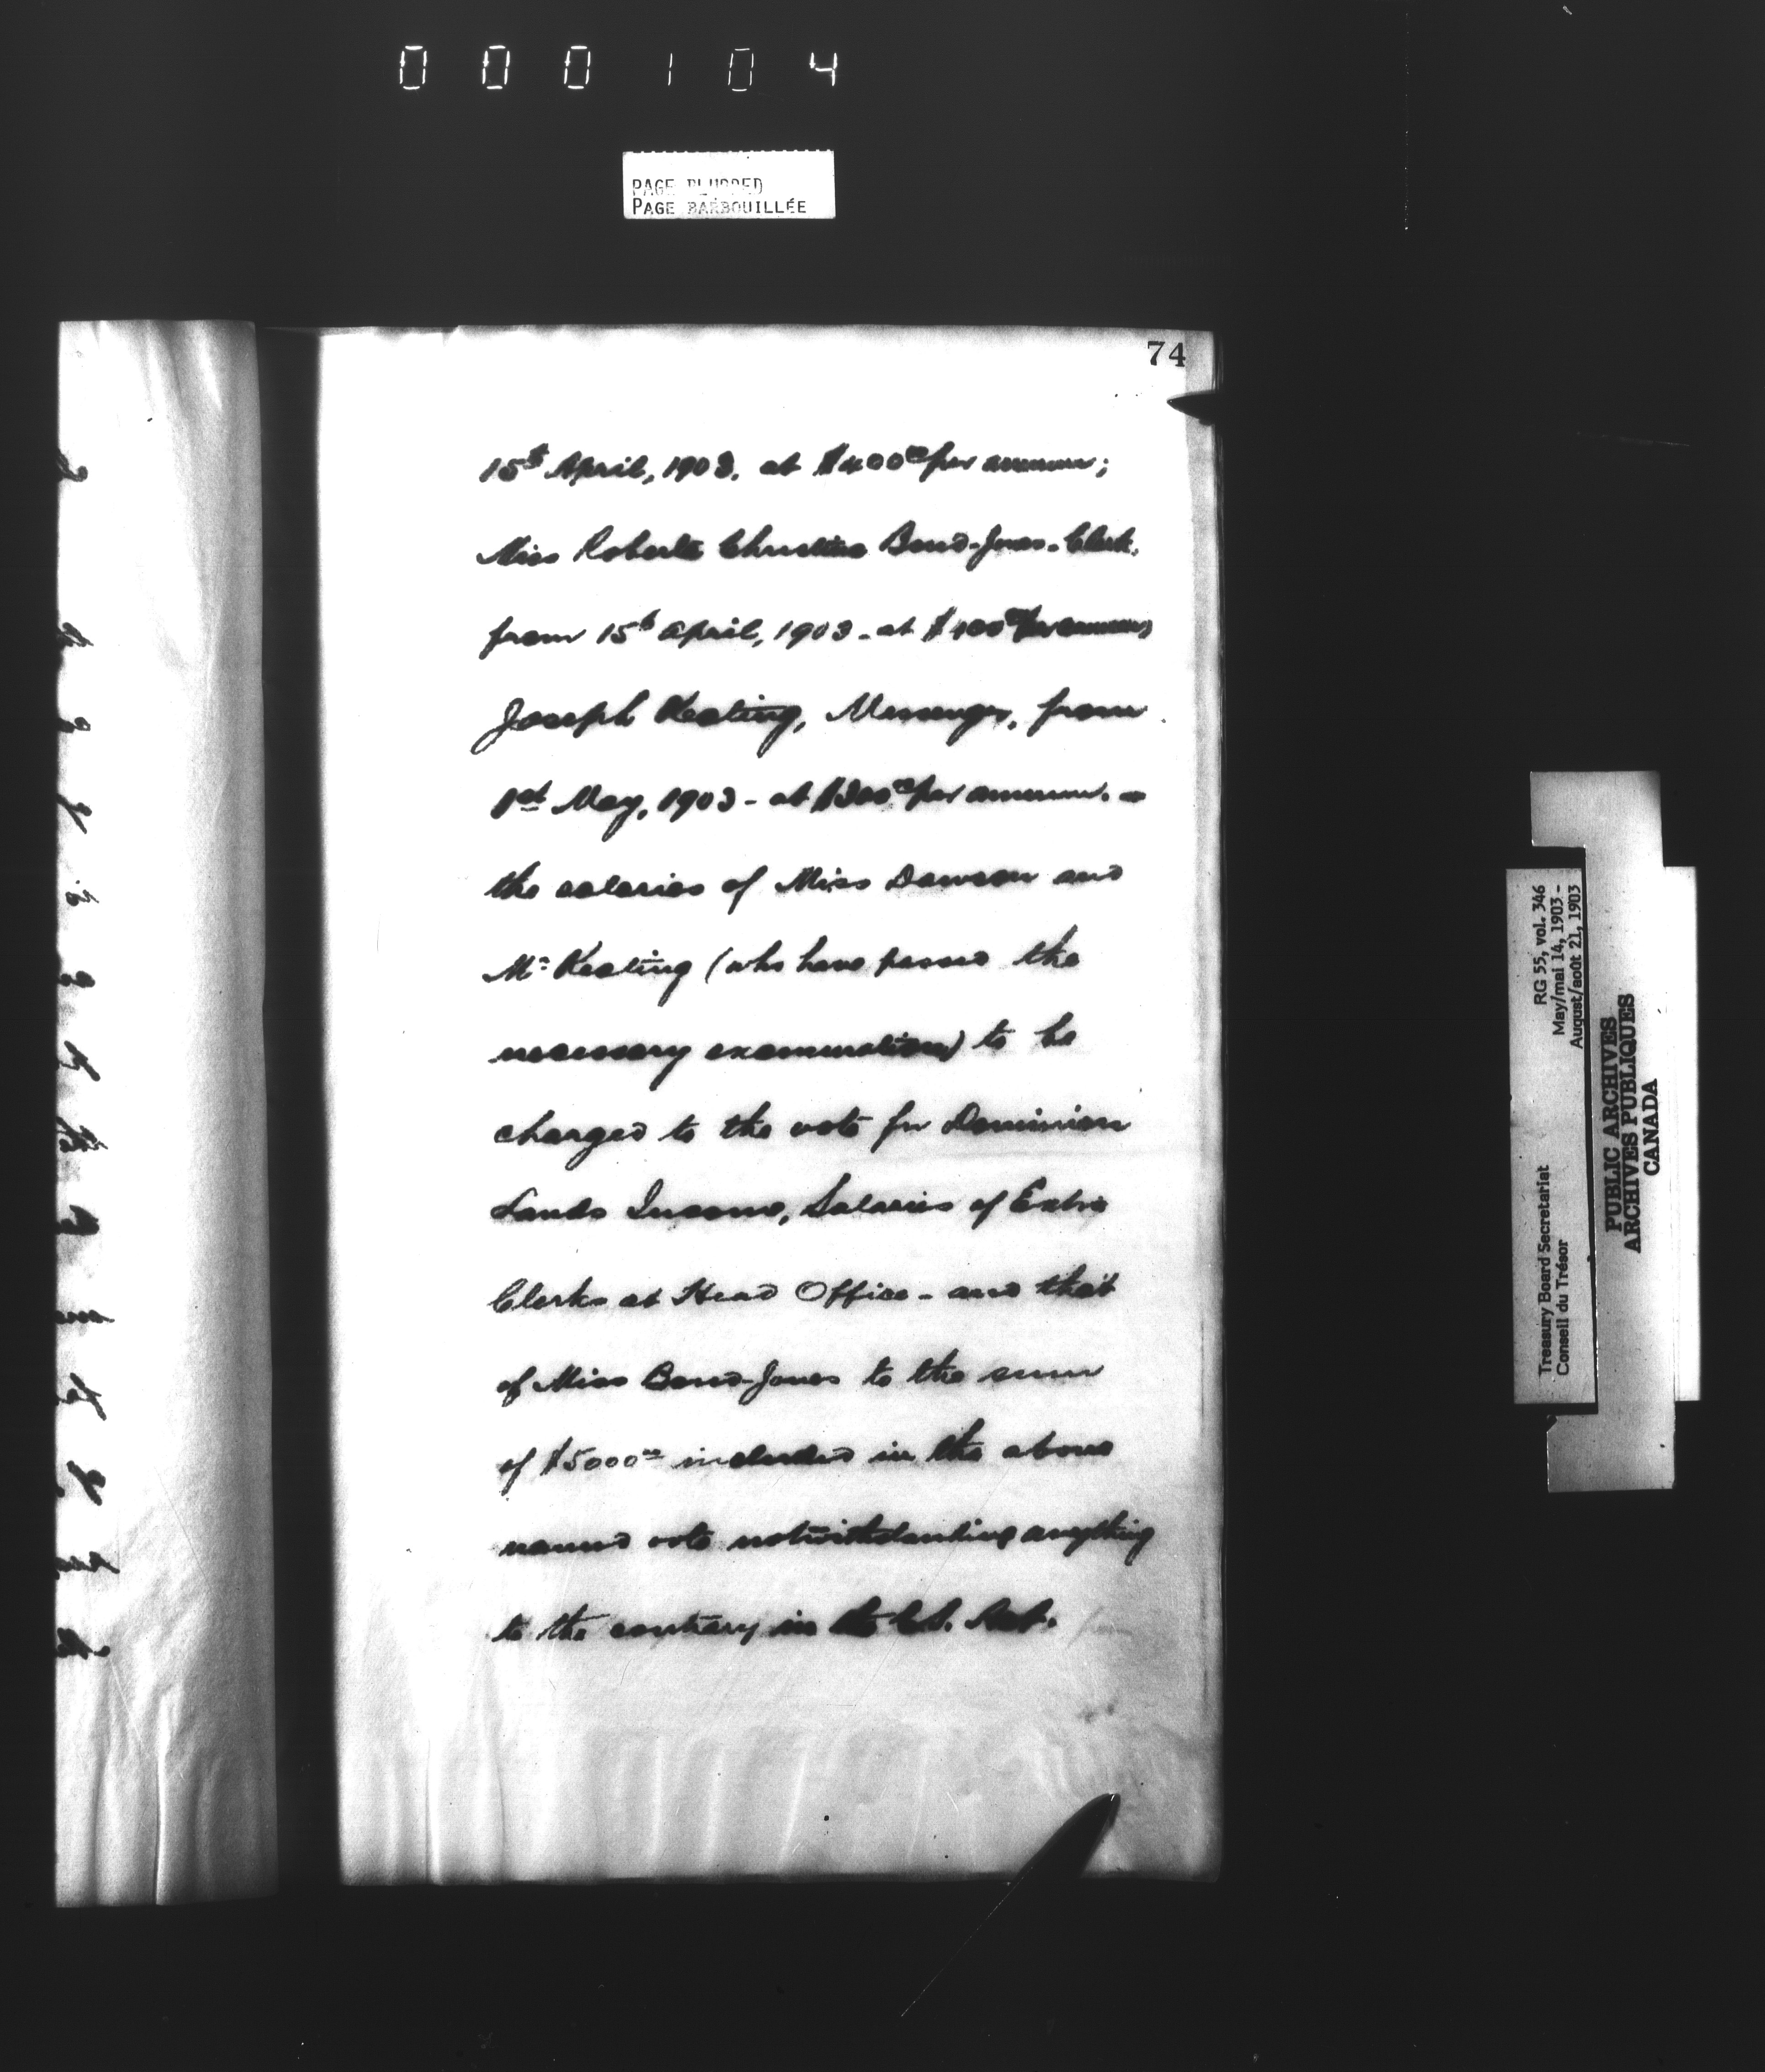 000104
PAGE BLURRED
PAGE BARBOUILLÉE
74
15th April, 1903. at $400.00 per annum;
Miss Roberta Christina Bond-Jones. Clerk.
from 15th April, 1903 - at $400.00 per annum;
Joseph Keating, Messenger, from
1st May, 1903 - at $300.00 per annum. -
the salaries of Miss Dawson and
Mr Keating (who have passed the
necessary examination) to be
charged to the vote for Dominion
Lands Income, Salaries of Extra
Clerks at Head Office - and that
of Miss Bond-Jones to the sum
of $5000.00 included in the above
named vote notwithstanding anything
to the contrary in the C.S. Act.
Treasury Board Secretariat RG 55, vol. 346
Conseil du Trésor May/mai 14, 1903 -
August/août 21, 1903
PUBLIC ARCHIVES
ARCHIVES PUBLIQUES
CANADA